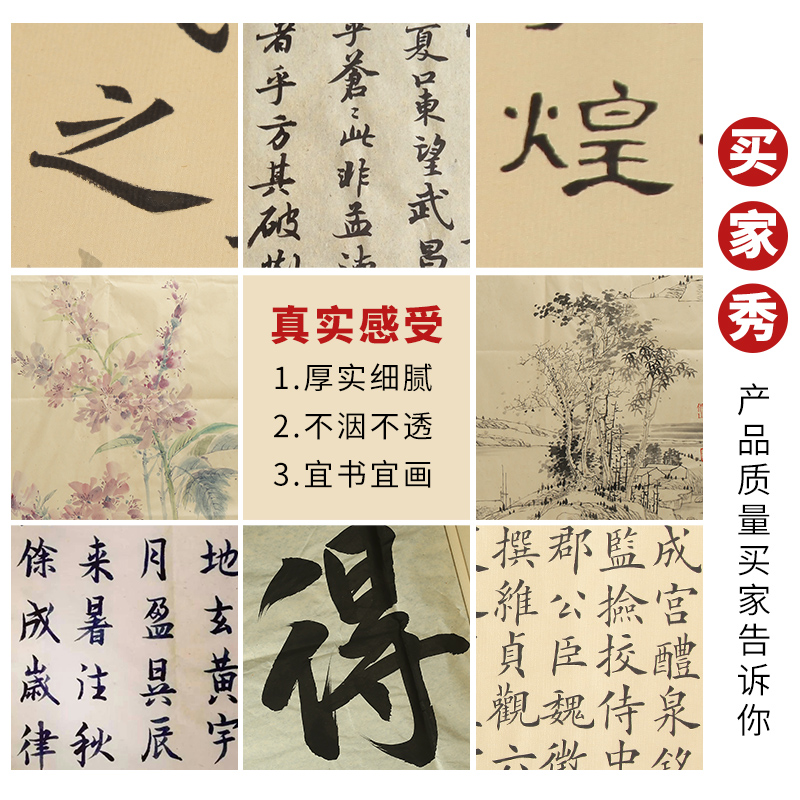 之
夏口東望武昌
乎蒼〻此非孟
者乎方其破
煌
买家秀
产品质量买家告诉你
真实感受
1.厚实细腻
2.不洇不透
3.宜书宜画
地玄黄宇
月盈昃辰
来暑往秋
馀成歲律
得
成宫醴泉銘
監撿挍侍中
郡公臣魏徵
撰維貞觀六